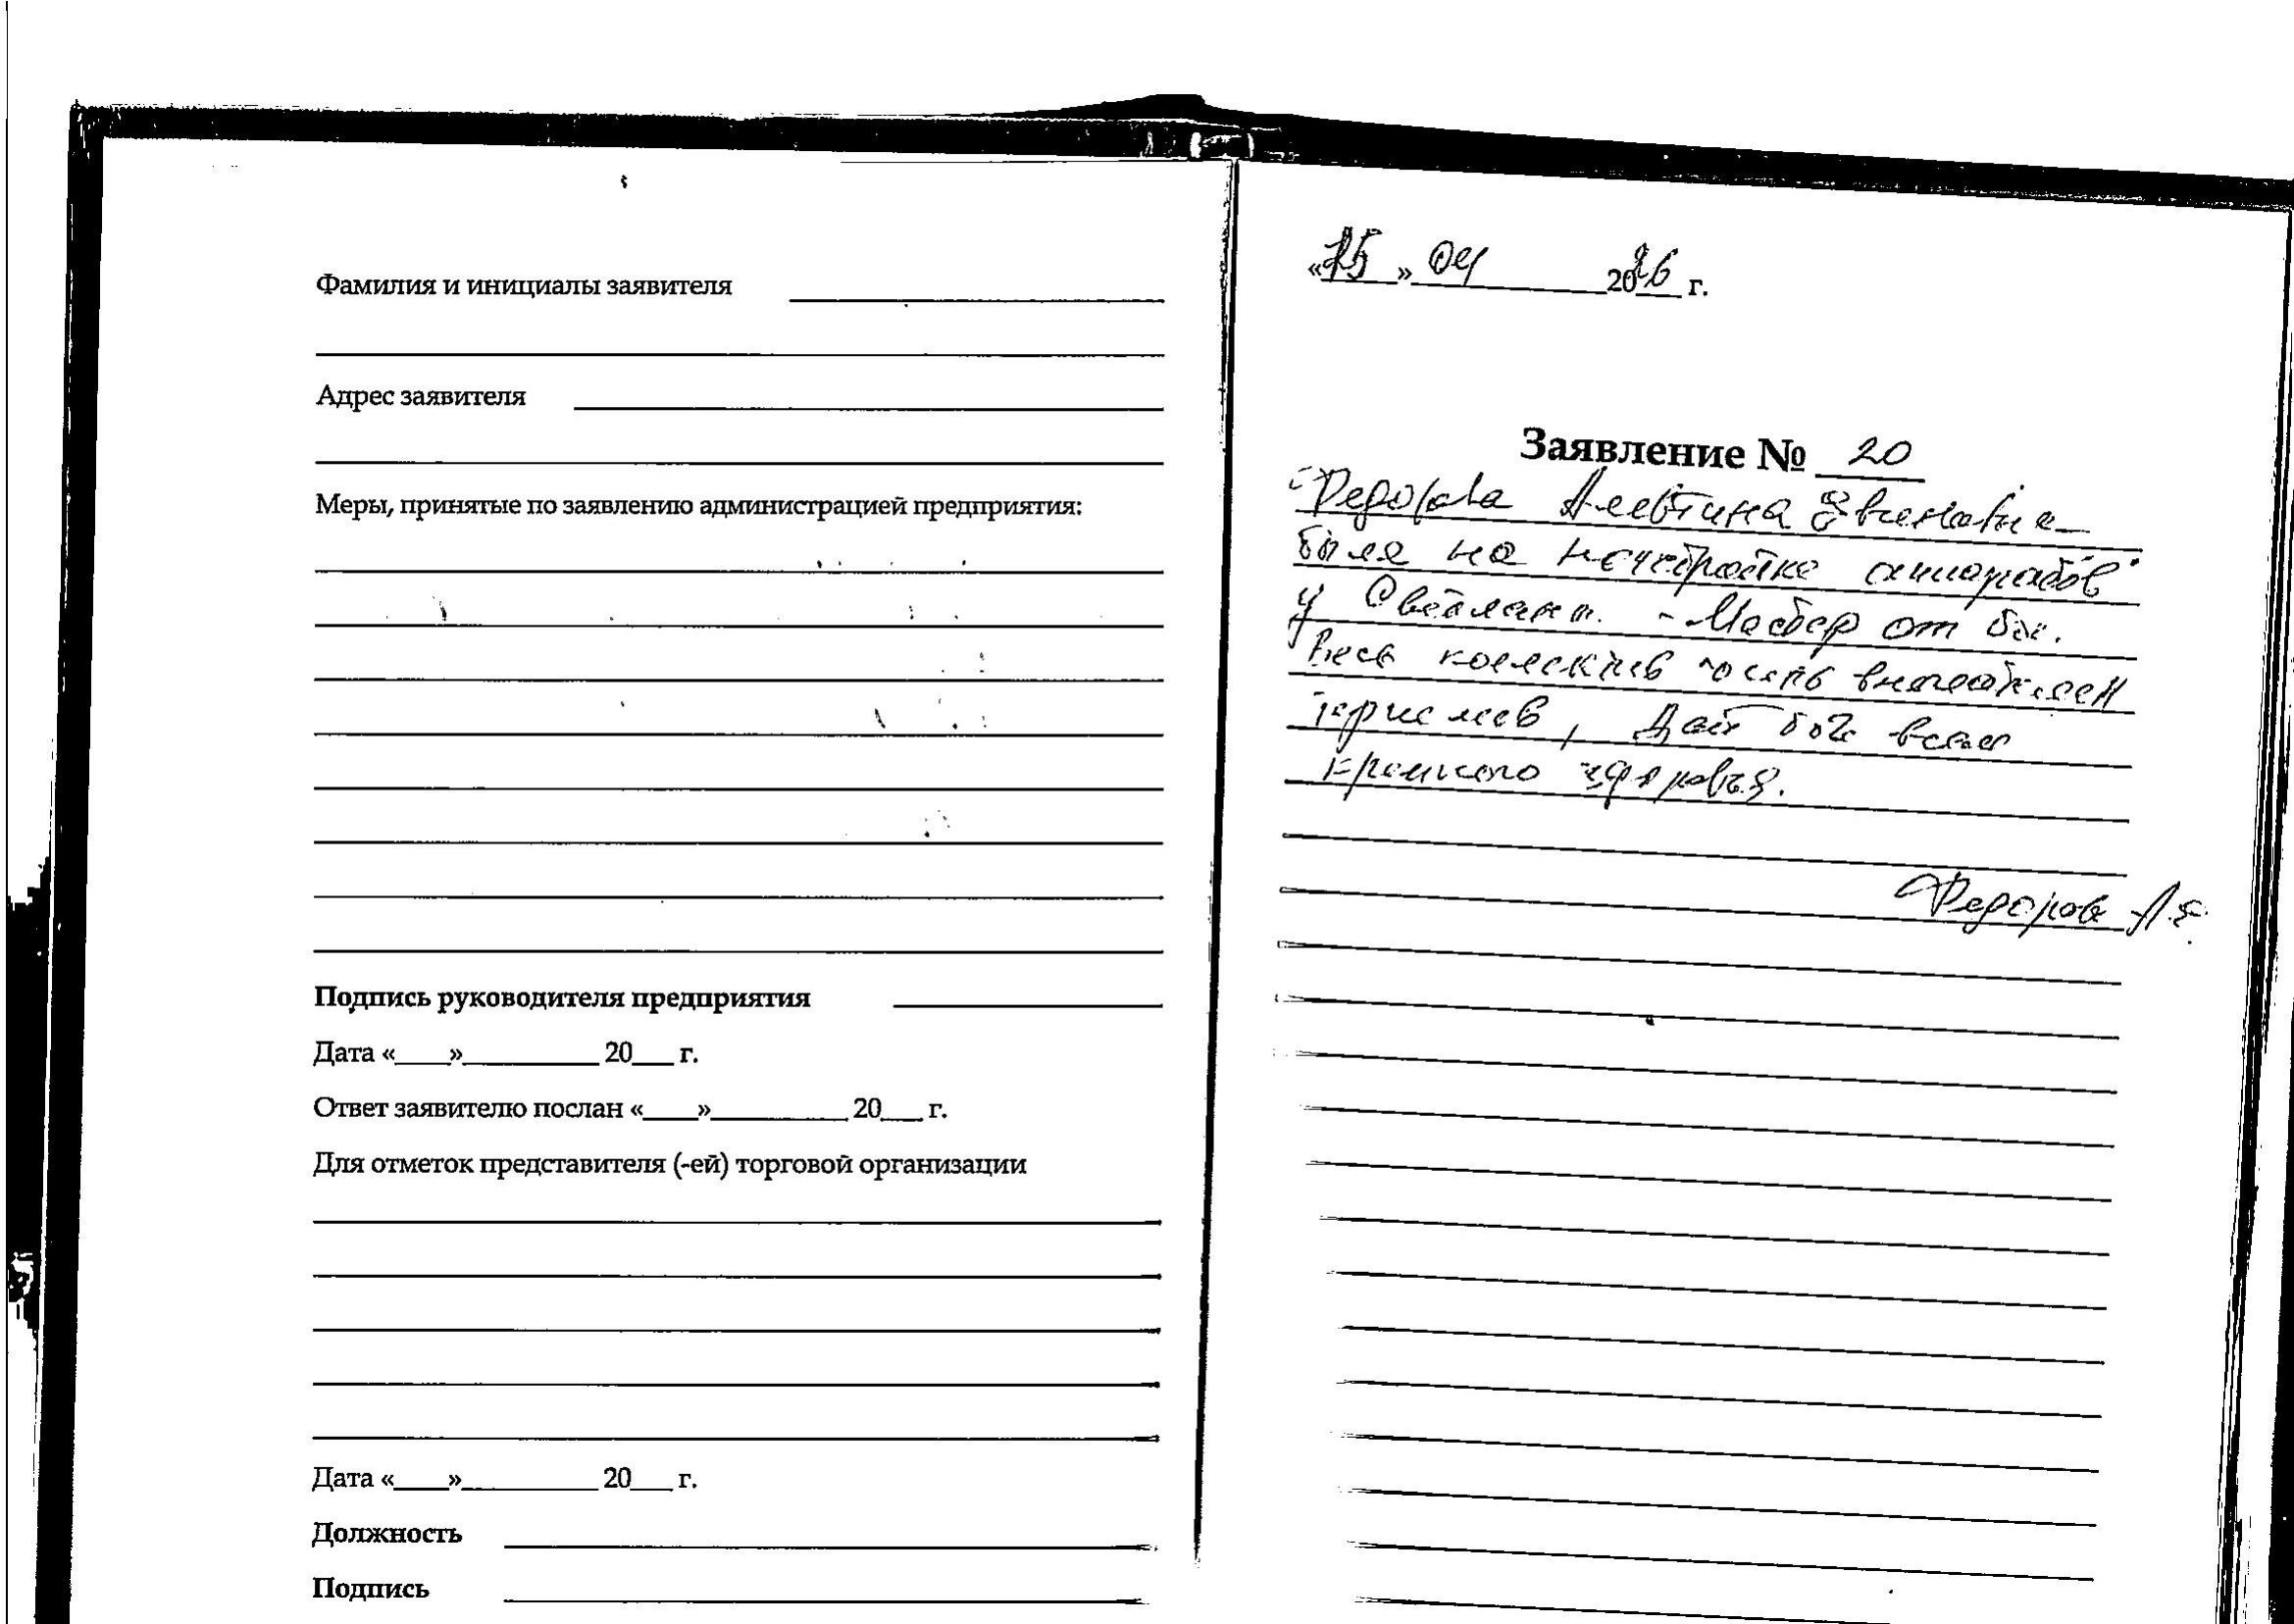 Фамилия и инициалы заявителя
Адрес заявителя
Меры, принятые по заявлению администрацией предприятия:
Подпись руководителя предприятия
Дата «___»__________ 20___ г.
Ответ заявителю послан «___»__________ 20___ г.
Для отметок представителя (-ей) торговой организации
Дата «___»__________ 20___ г.
Должность
Подпись
«25» 04 2026 г.
Заявление № 20
Федорова Алевтина
была на
у Светланы. - Мастер от бог.
Весь коллектив очень
Дай бог всем
крепкого здоровья.
Федорова А.Е.